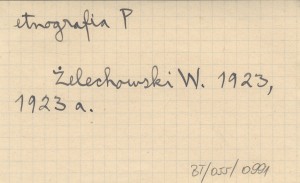 etnografia P
Żelechowski W. 1923,
1923 a.
BI/055/0991